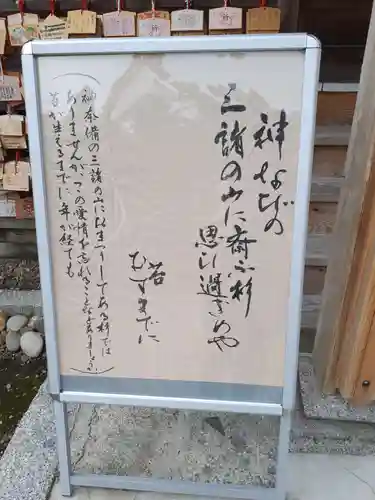 神なびの
三諸の山に斎ふ杉
思ひ過ぎめや
苔
むすまでに
(神奈備の三諸の山におまつりしてある杉では
ありませんが、この愛情を忘れることなどありましょうか
苔が生えるまでに、年が経ても)